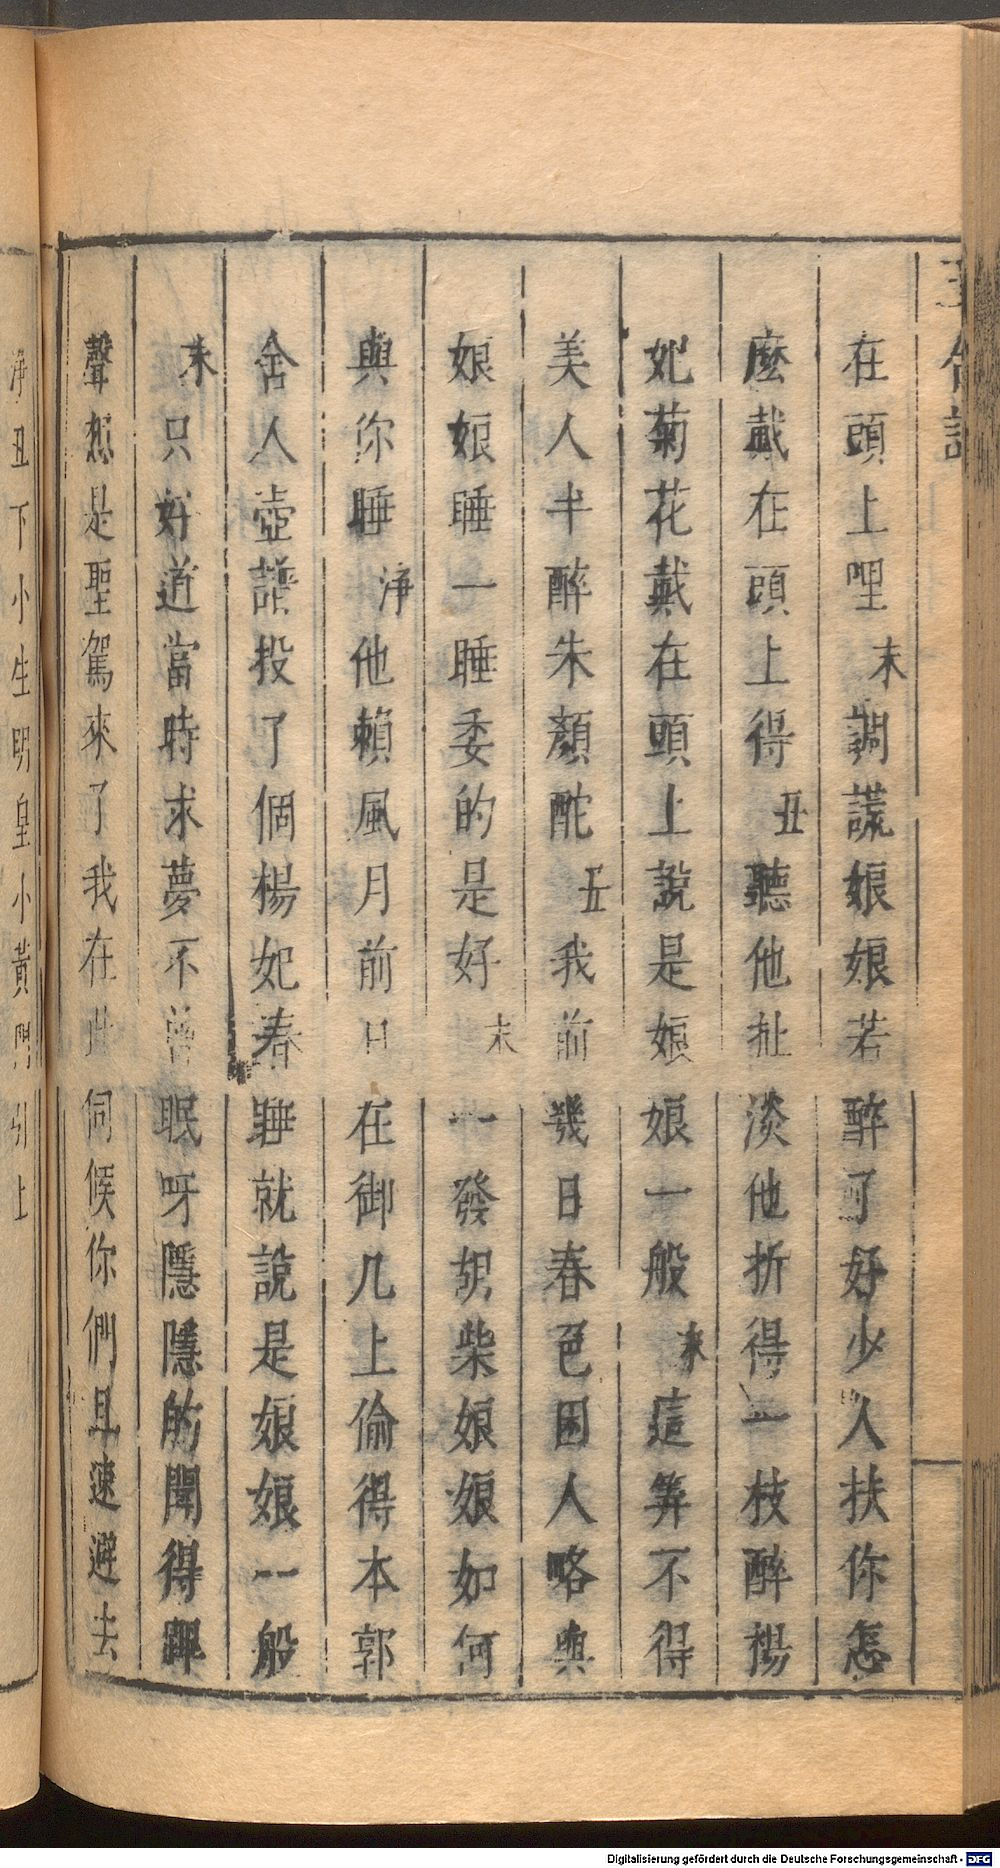 在頭上哩末調謊娘娘若醉了好少人扶你怎
麼戴在頭上得丑聽他扯淡他折得一枝醉楊
妃菊花戴在頭上說是娘娘一般末這算不得
美人半醉朱顏酡丑我前幾日春色困人略與
娘娘睡一睡委的是好末一發胡柴娘娘如何
與你睡淨他賴風月前日在御几上偷得本郭
舍人壺譜投了個楊妃春睡就說是娘娘一般
末只好道當時求夢不曾眠呀隱隱的聞得蹕
聲想是聖駕來了我在此伺候你們且速避去
淨丑下小生明皇小黃門引上
Digitalisierung gefördert durch die Deutsche Forschungsgemeinschaft - DFG